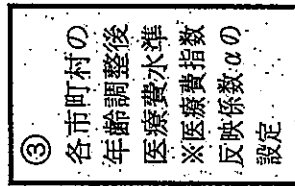 ③
各市町村の
年齢調整後
医療費水準
※医療費指数
反映係数αの
設定